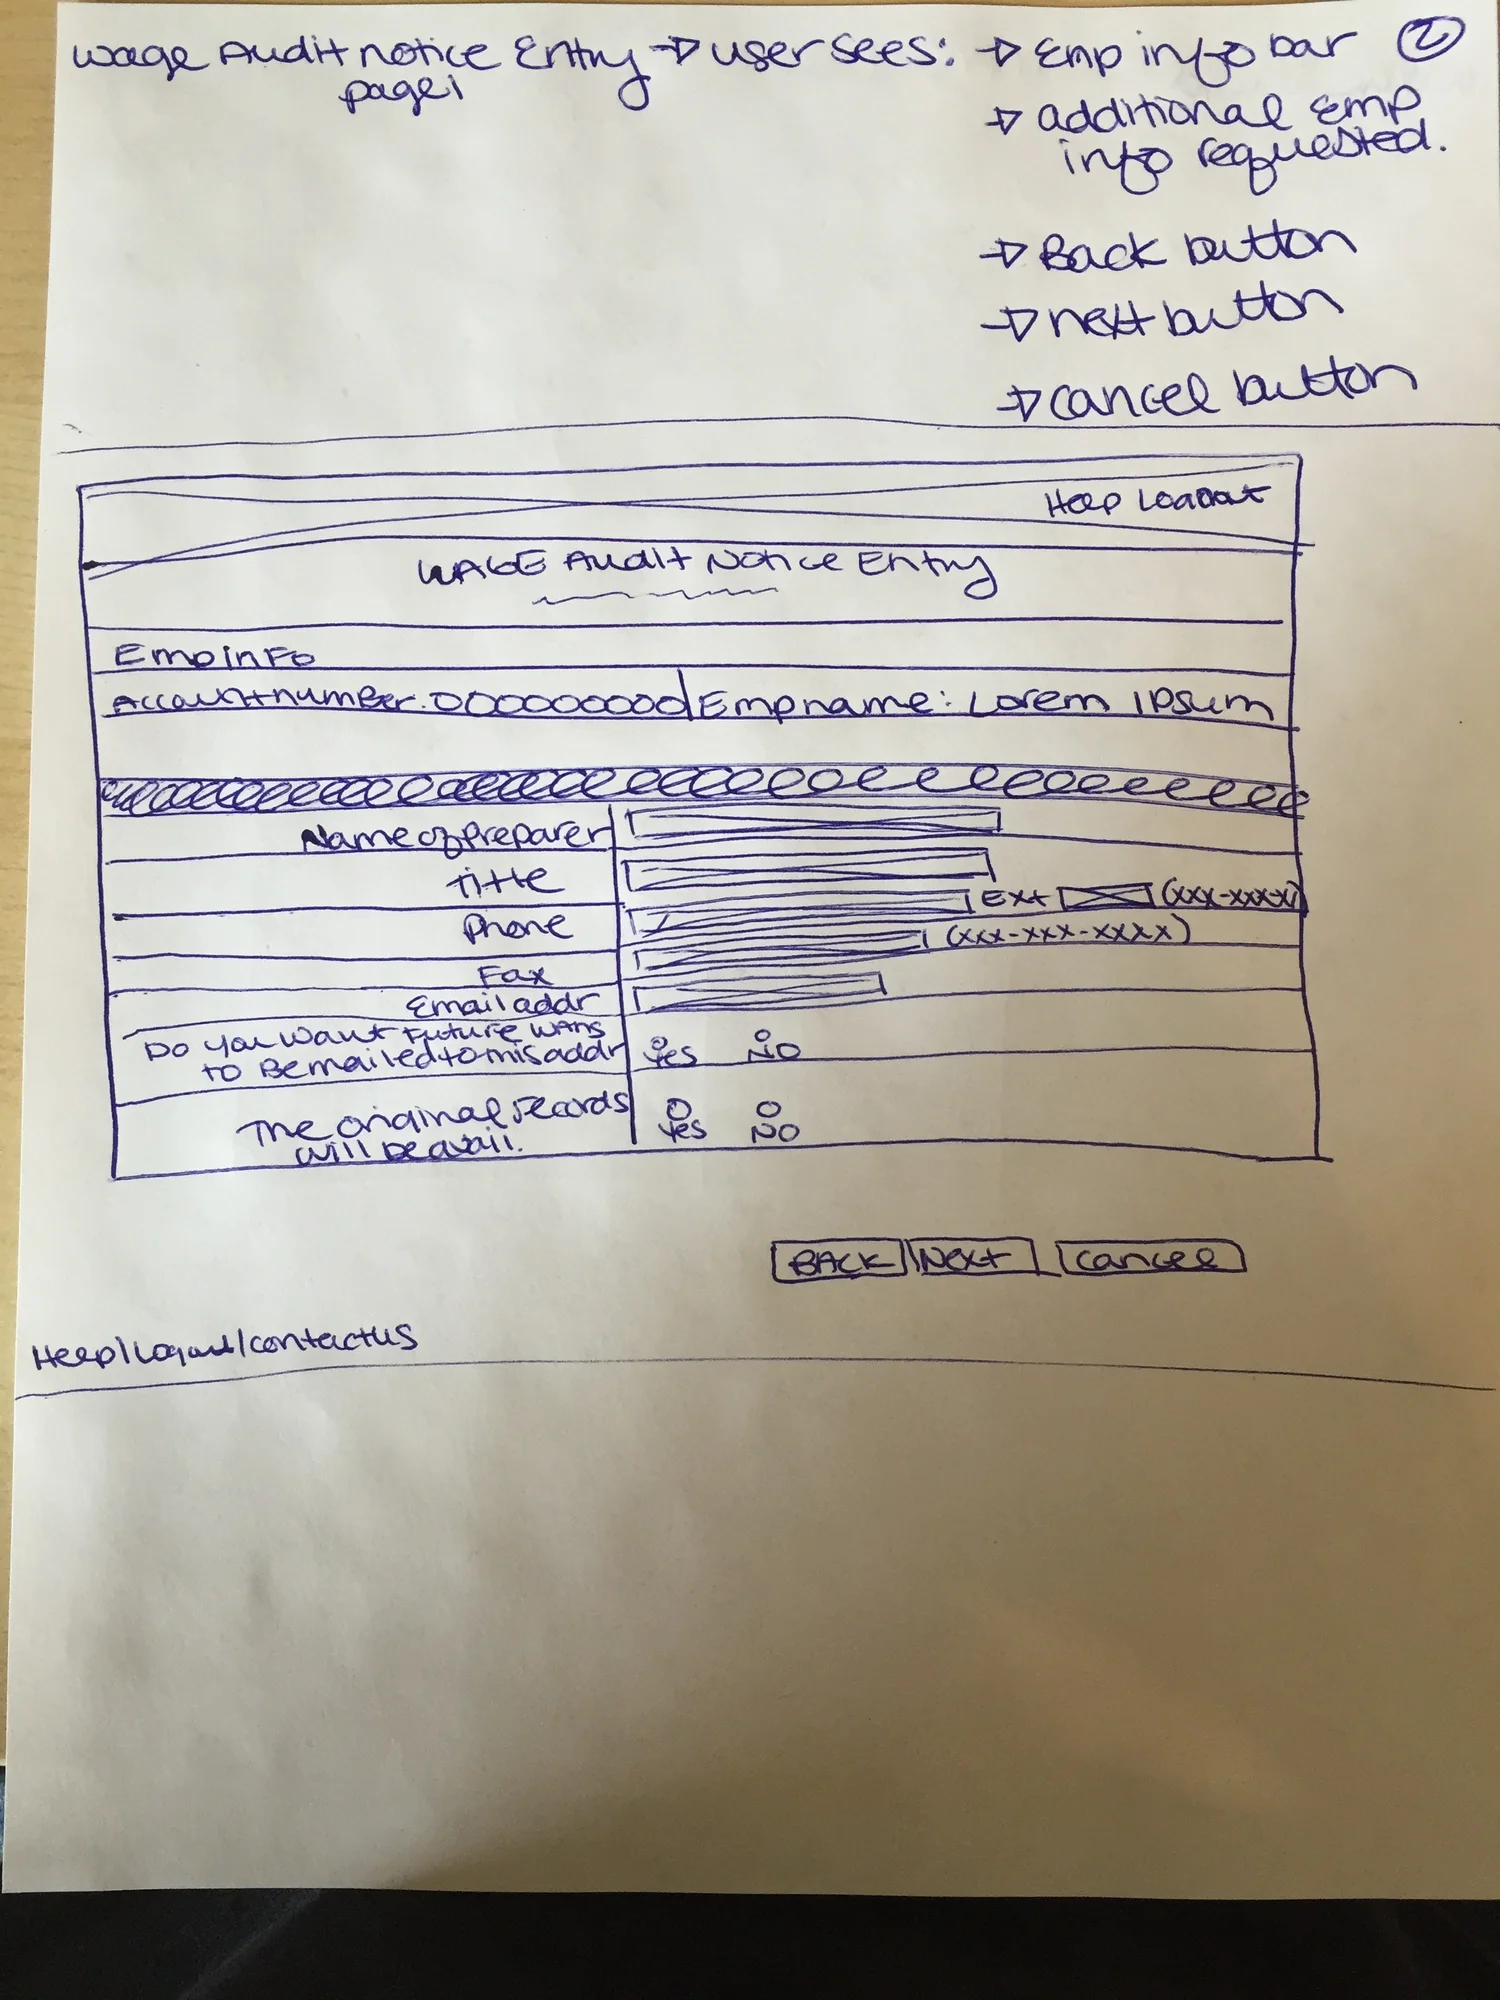 Wage Audit notice Entry → user sees: → Emp info bar 2
page 1
→ additional Emp
info requested.
→ Back button
→ next button
→ cancel button
Help Logout
WAGE Audit Notice Entry
Emp info
Account number: 0000000000 Emp name: Lorem Ipsum
Name of preparer
Title
Phone Ext (xxx-xxxx)
Fax (xxx-xxx-xxxx)
Email addr
Do you want Future WANs
to Be mailed to this addr Yes No
The original records Yes No
will be avail.
BACK Next Cancel
Help/Logout/contact us